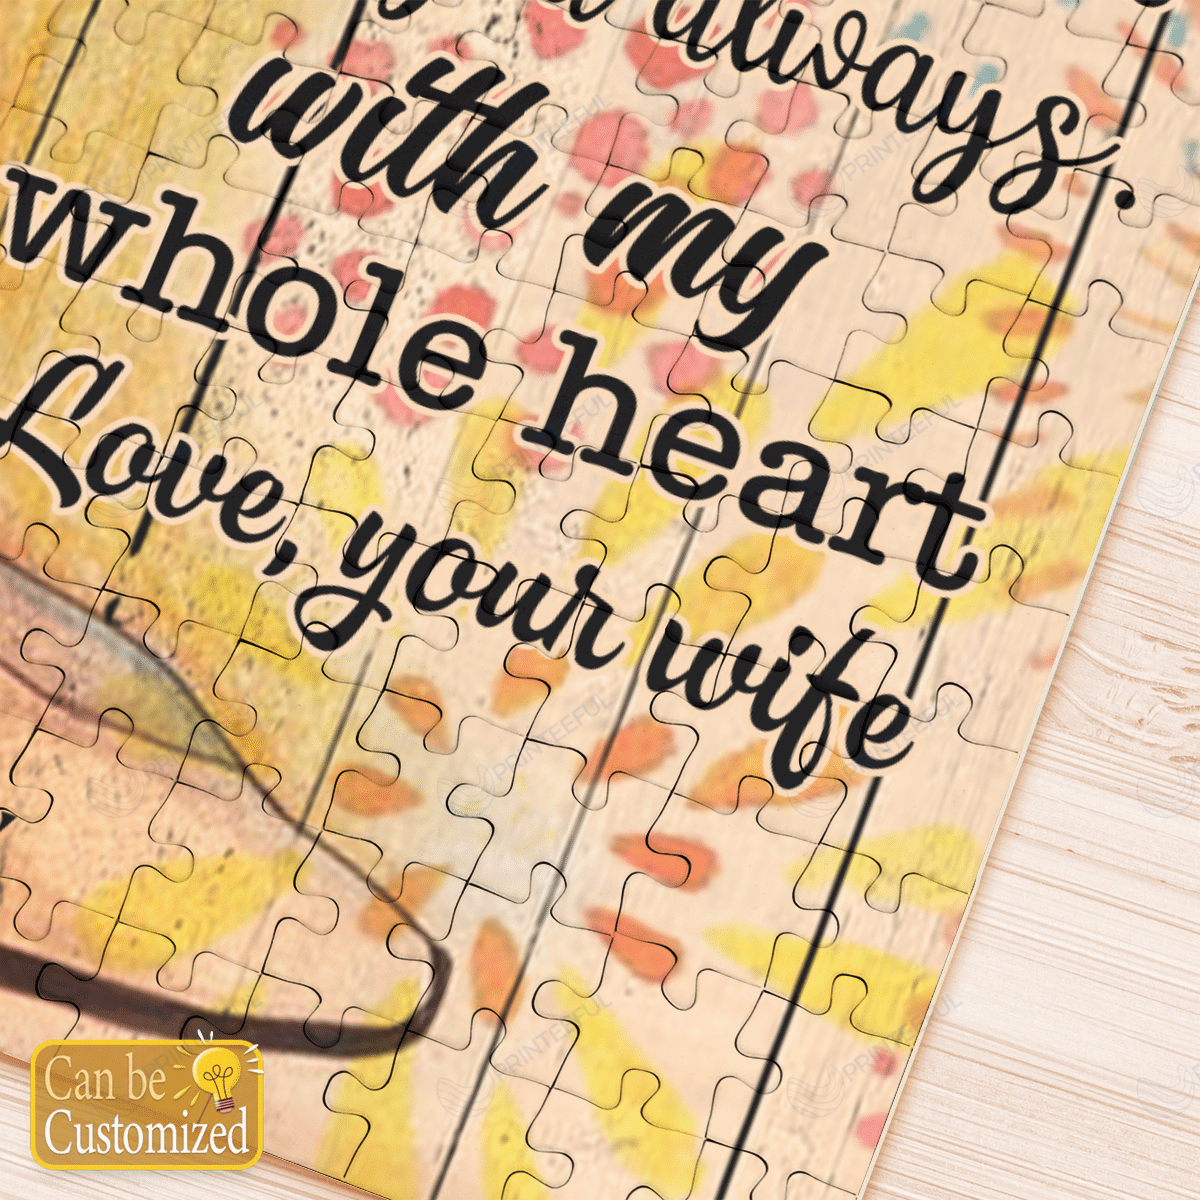 always.
with my
whole heart
Love, your wife
Can be
Customized
PRINTEEFUL